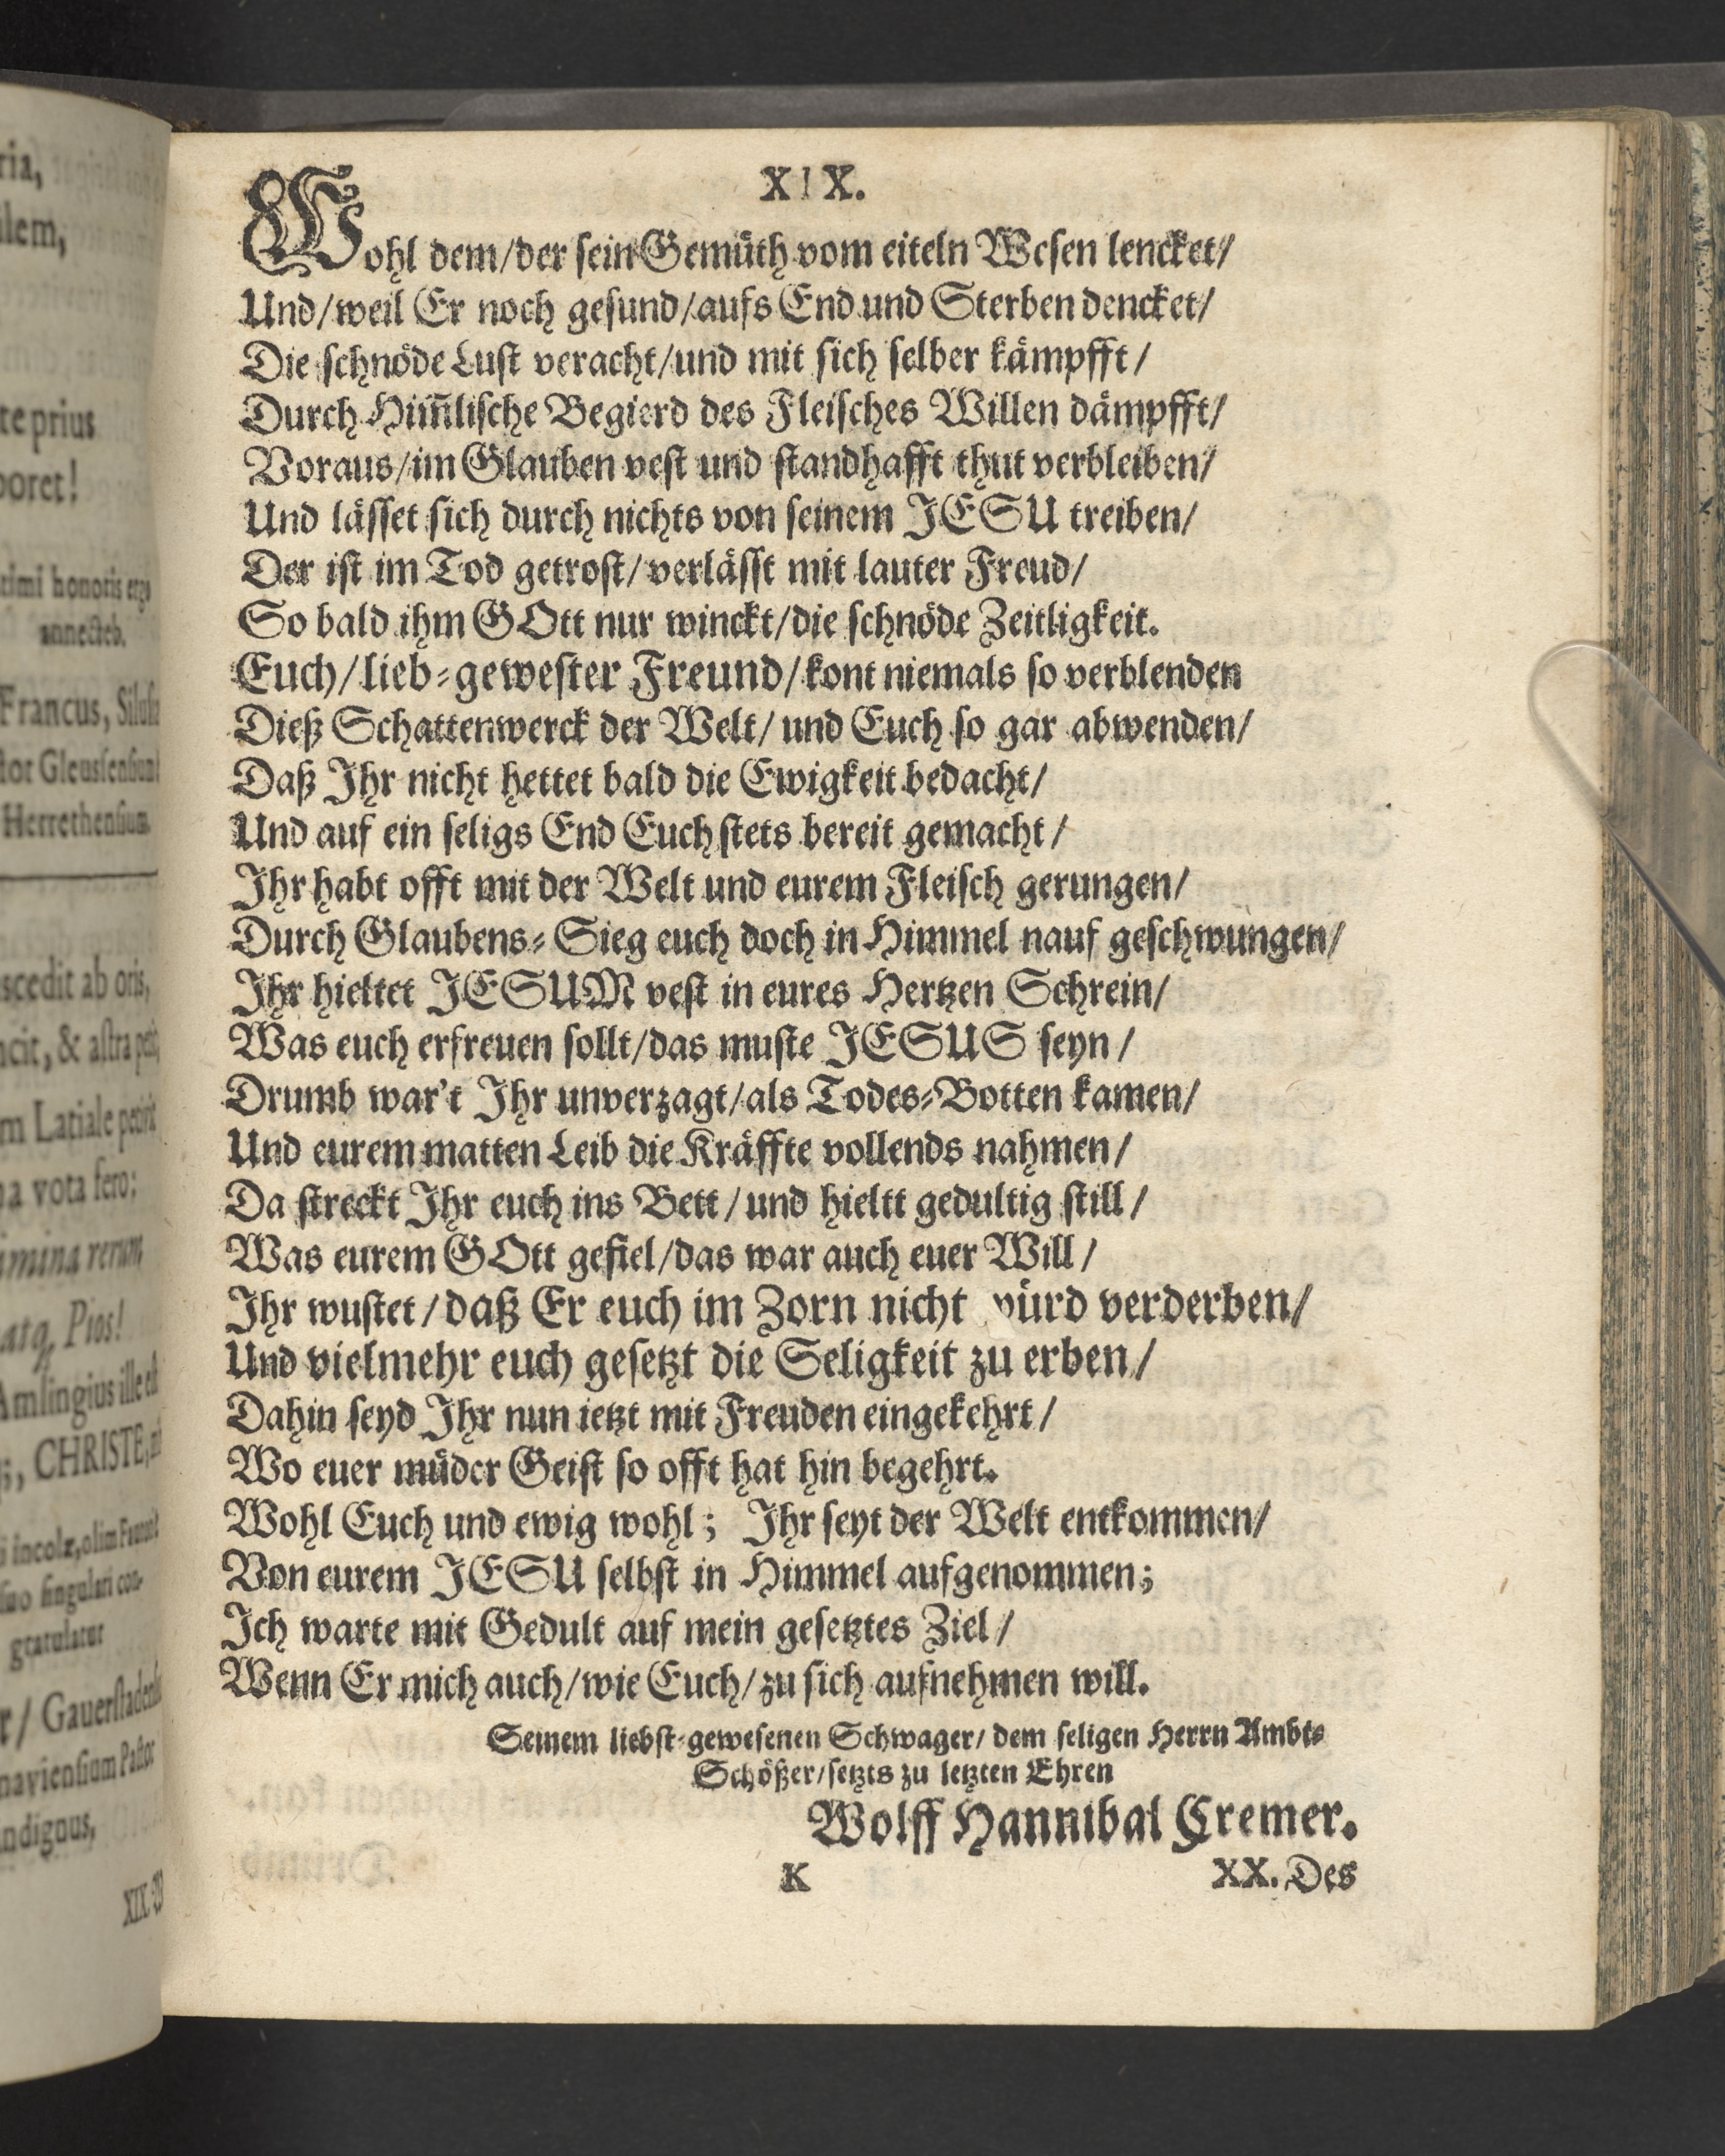 ria,
ulem,
te prius
poret!
ximi honoris ergo
annecteb.
Francus, Silusia
stor Gleusensium
Herrethensium.
scedit ab oris,
ncit, & astra petit
m Latiale petivit
na vota fero;
imina rerum
atq; Pios!
Amlingius ille est
CHRISTE,
i incolæ, olim
suo singulari con-
gratulatur
r / Gauerstadensis
naviensium Pastor
indignus,
XIX.
XIX.
Wohl dem/der sein Gemüth vom eiteln Wesen lencket/
Und/weil Er noch gesund/aufs End und Sterben dencket/
Die schnöde Lust veracht/und mit sich selber kämpfft/
Durch Him̃lische Begierd des Fleisches Willen dämpfft/
Voraus/im Glauben vest und standhafft thut verbleiben/
Und lässet sich durch nichts von seinem JESU treiben/
Der ist im Tod getrost/verlässt mit lauter Freud/
So bald ihm GOtt nur winckt/die schnöde Zeitligkeit.
Euch/lieb-gewester Freund/kont niemals so verblenden
Dieß Schattenwerck der Welt/ und Euch so gar abwenden/
Daß Ihr nicht hettet bald die Ewigkeit bedacht/
Und auf ein seligs End Euch stets bereit gemacht/
Ihr habt offt mit der Welt und eurem Fleisch gerungen/
Durch Glaubens-Sieg euch doch in Himmel nauf geschwungen/
Ihr hieltet JESUM vest in eures Hertzen Schrein/
Was euch erfreuen sollt/das muste JESUS seyn/
Drumb war't Ihr unverzagt/als Todes-Botten kamen/
Und eurem matten Leib die Kräffte vollends nahmen/
Da streckt Ihr euch ins Bett/und hieltt gedultig still/
Was eurem GOtt gefiel/das war auch euer Will/
Ihr wustet/daß Er euch im Zorn nicht würd verderben/
Und vielmehr euch gesetzt die Seligkeit zu erben/
Dahin seyd Ihr nun ietzt mit Freuden eingekehrt/
Wo euer müder Geist so offt hat hin begehrt.
Wohl Euch und ewig wohl; Ihr seyt der Welt entkommen/
Von eurem JESU selbst in Himmel aufgenommen;
Ich warte mit Gedult auf mein gesetztes Ziel/
Wenn Er mich auch/wie Euch/zu sich aufnehmen will.
Seinem liebst-gewesenen Schwager/ dem seligen Herrn Ambt-
Schößer/setzts zu letzten Ehren
Wolff Hannibal Cremer.
K XX. Des